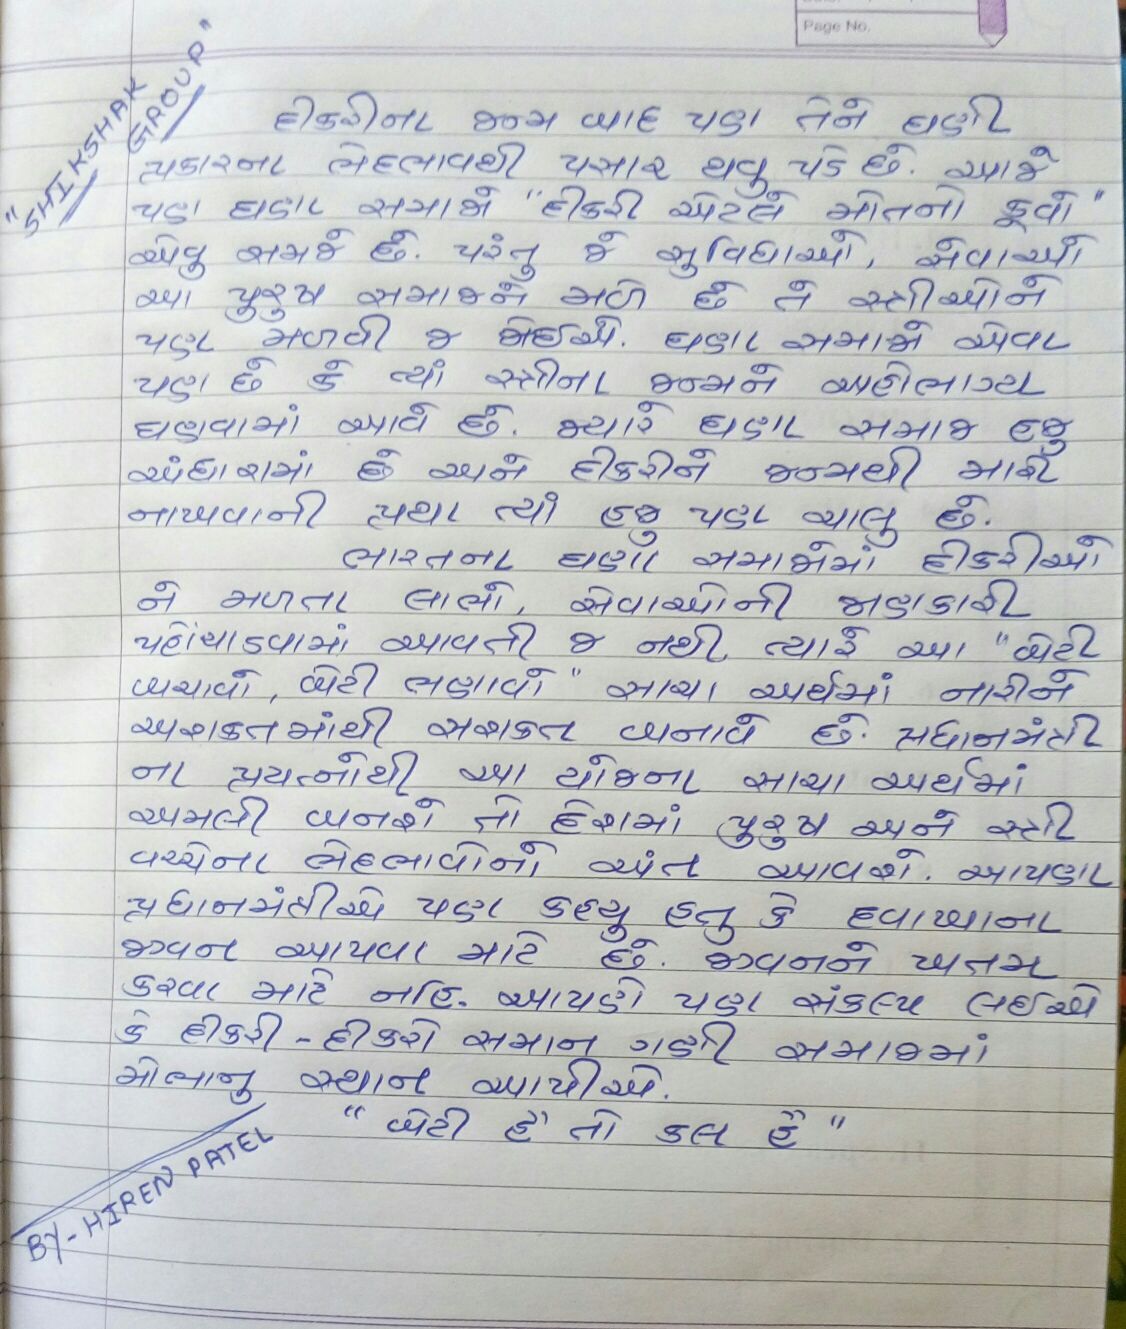 Page No.
"SHIKSHAK
GROUP"
દીકરીના જન્મ બાદ પણ તેને ઘણી
પ્રકારના ભેદભાવથી પસાર થવુ પડે છે. આજે
પણ ઘણા સમાજો "દીકરી એટલે મોતનો કૂવો"
એવુ સમજે છે. પરંતુ જે સુવિધાઓ, સેવાઓ
આ પુરુષ સમાજને મળે છે તે સ્ત્રીઓને
પણ મળવી જ જોઈએ. ઘણા સમાજો એવા
પણ છે કે ત્યાં સ્ત્રીના જન્મને અહોભાગ્ય
ઘણવામાં આવે છે. જ્યારે ઘણા સમાજ હજુ
અંધારામાં છે અને દીકરીને જન્મથી મારી
નાખવાની પ્રથા ત્યાં હજુ પણ ચાલુ છે.
ભારતના ઘણા સમાજોમાં દીકરીઓ
ને મળતા લાભો, સેવાઓની જાણકારી
પહોંચાડવામાં આવતી જ નથી, ત્યારે આ "બેટી
બચાવો, બેટી ભણાવો" સાચા અર્થમાં નારીને
અશકતમાંથી સશકત બનાવે છે. પ્રધાનમંત્રી
ના પ્રયત્નોથી આ યોજના સાચા અર્થમાં
અમલી બનશે તો દેશમાં પુરુષ અને સ્ત્રી
વચ્ચેના ભેદભાવોનો અંત આવશે. આપણા
પ્રધાનમંત્રીએ પણ કહ્યુ હતુ કે દવાખાના
જીવન આપવા માટે છે. જીવનને ખતમ
કરવા માટે નહિ. આપણે પણ સંકલ્પ લઈએ
કે દીકરી - દીકરો સમાન ગણી સમાજમાં
મોભાનુ સ્થાન આપીએ.
"બેટી હૈ તો કલ હૈ"
BY - HIREN PATEL